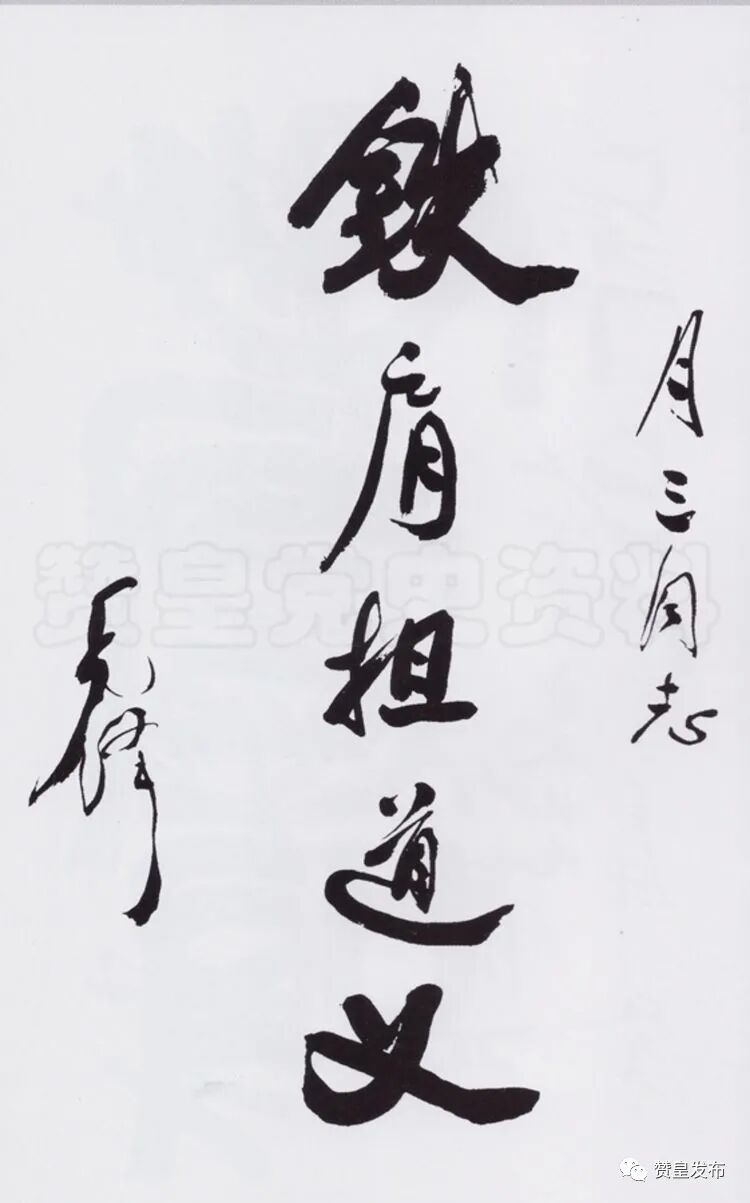 月三同志
鉄肩担道义
赞皇党史资料
赞皇发布